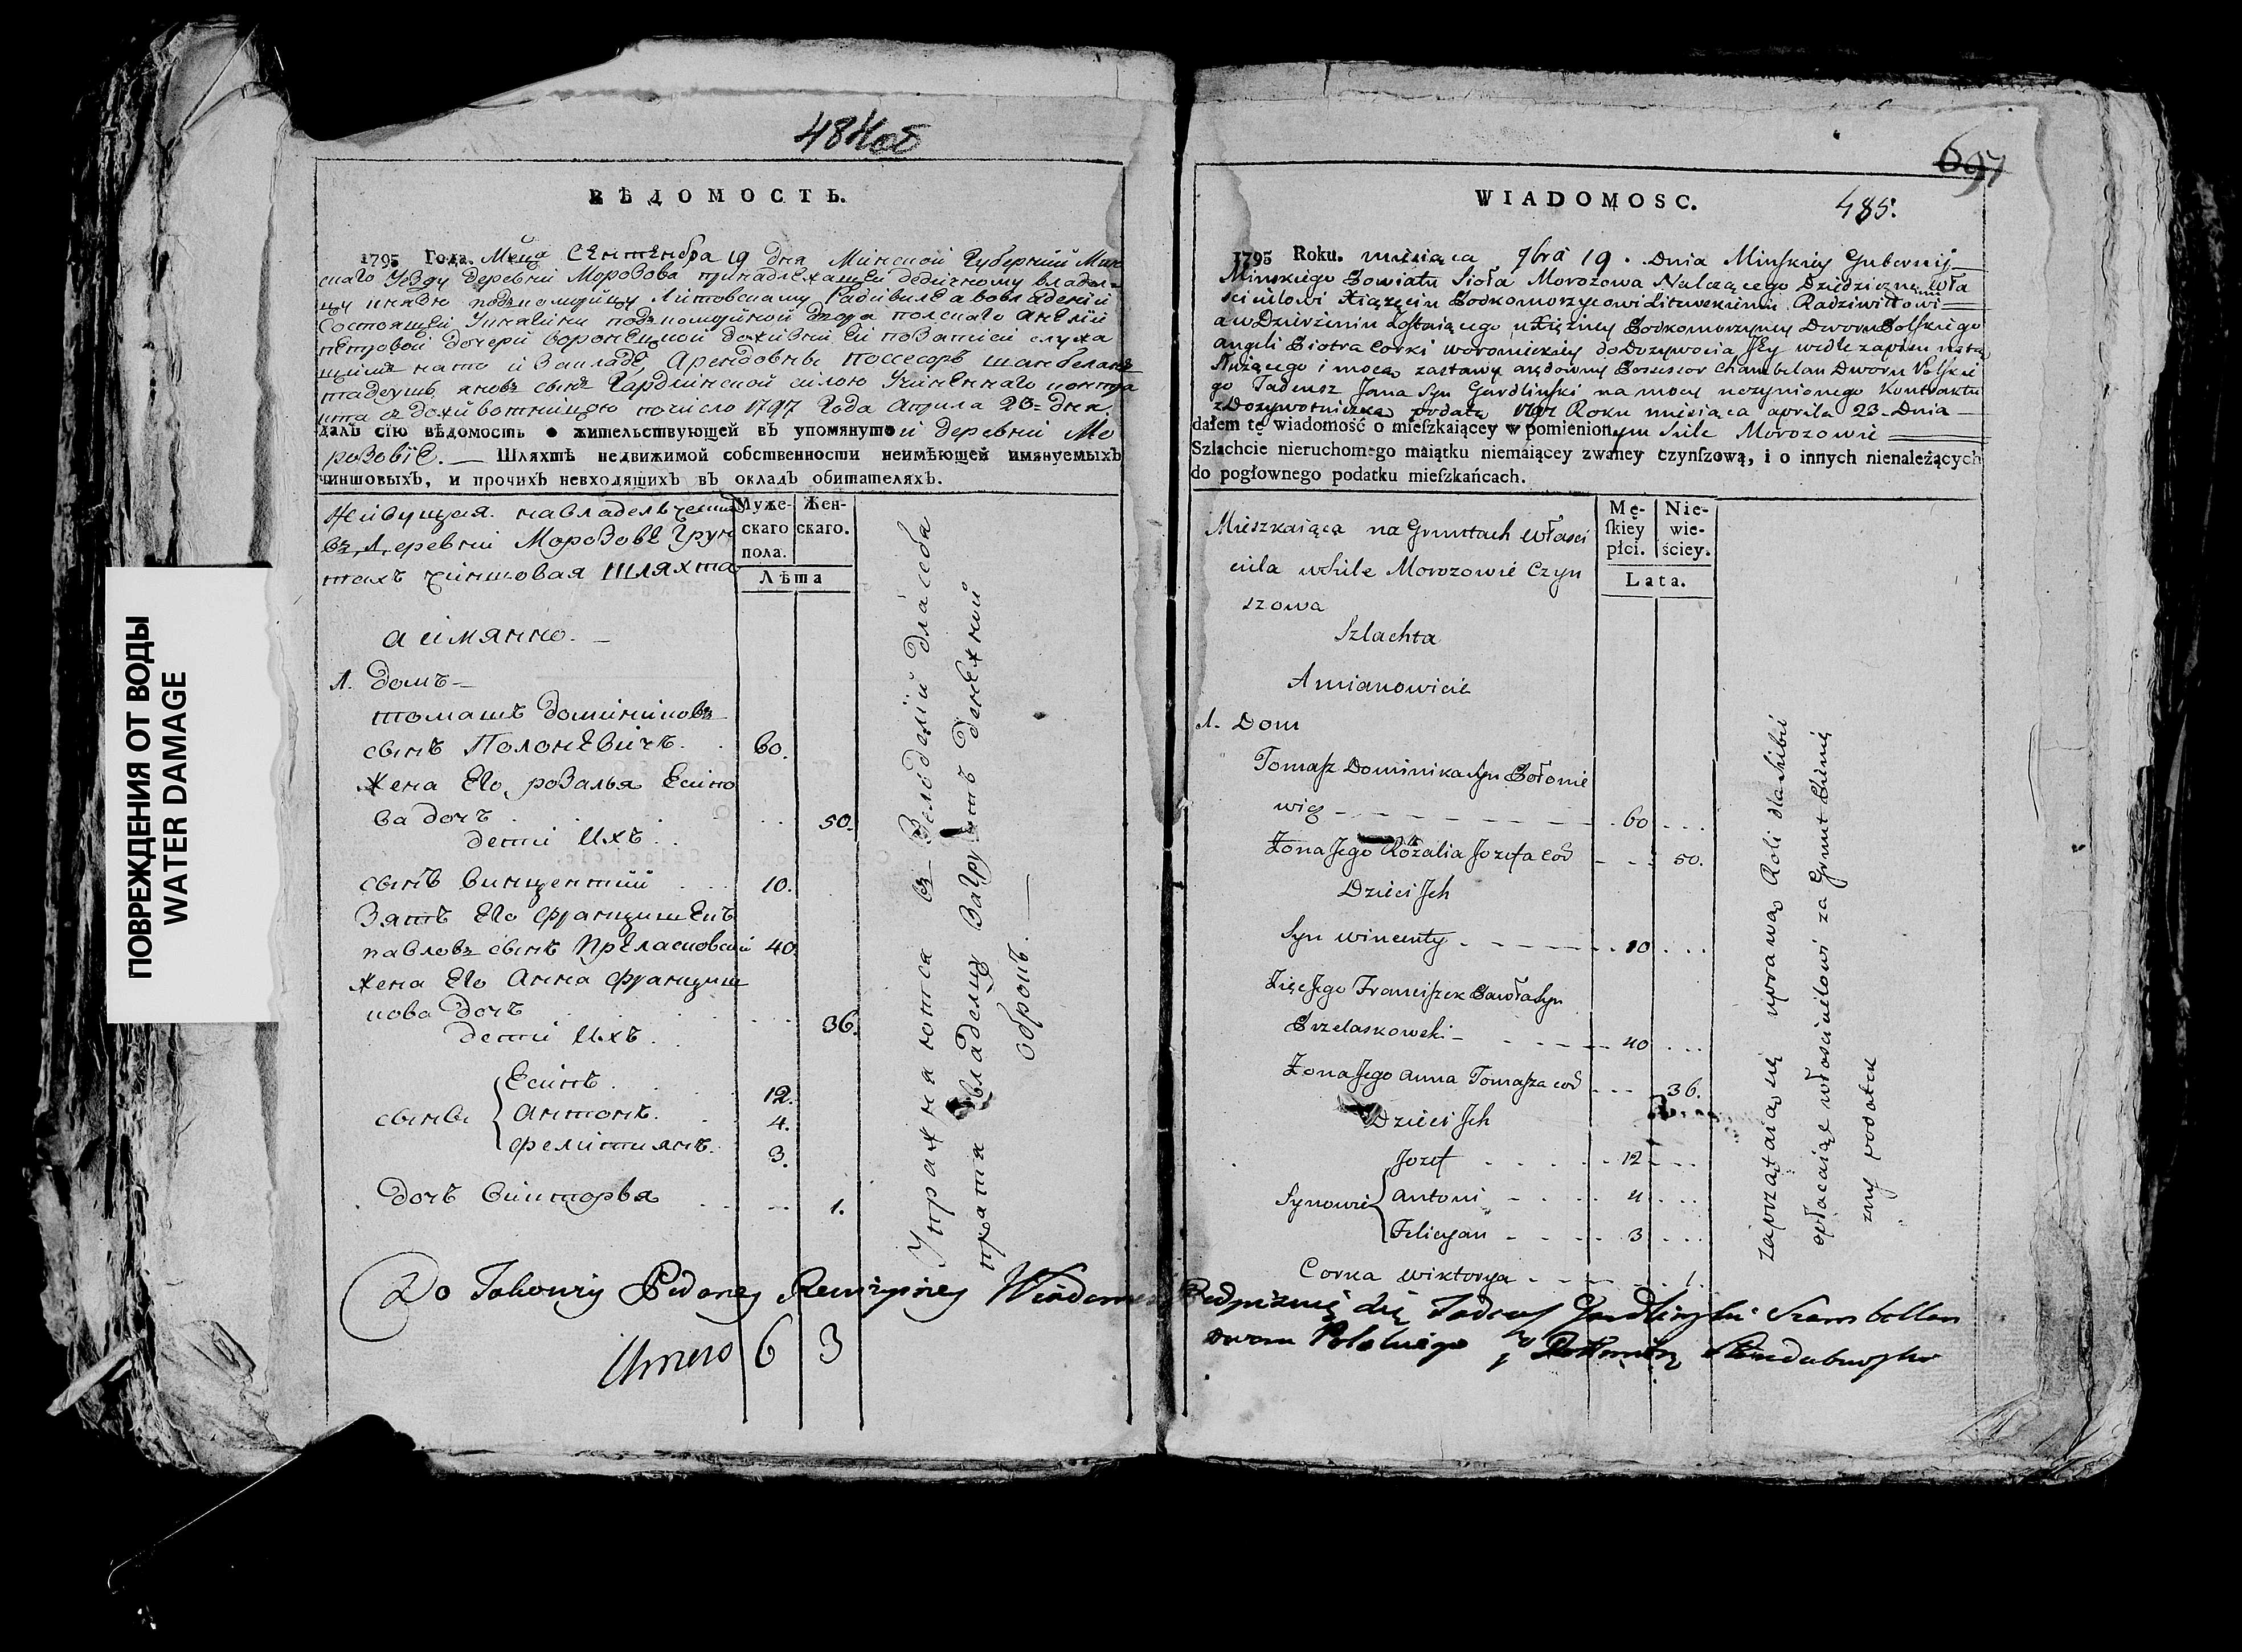 484 об
ВѢДОМОСТЬ.
1795 Года. Мца Сентября 19 дня Минской Губерний Мин
скаго Уезду деревни Морозова принадлежащей дедичному владел
цу князю подкоморийцу Литовскому Радивиле а вовладений
состоящей Княгини подкоморийной двора полскаго Анелии
петровой дочери воронецкой дожизни ей по записи служа
щими на то и Закладу Арендовны поссесоръ шамбелянъ
тадеушъ яновъ сынъ Гардлинской силою Учиненнаго контра
кта з доживотницою почисло 1797 Года Априла 23 = дня
далъ сїю вѣдомость о жительствующей въ упомянутой деревни Мо
розовiе. — Шляхтѣ недвижимой собственности неимѣющей имянуемыхъ
чиншовыхъ, и прочихъ невходящихъ въ окладъ обитателяхъ.
Живущая на владелческихъ
въ деревни Морозове Грун
тахъ чиншовая шляхта
Муже-
скаго
пола.
Жен-
скаго.
Лѣта
а имянно. —
1. домъ —
томашъ доминиковъ
сынъ Полоневичъ. 60.
жена Его розалья Есипо
ва дочъ 50.
дети Ихъ
сынъ винцентий 10.
Зять Его францишекъ
павловъ сынъ Пржеласковский 40.
жена Его Анна францише
кова дочъ 36.
дети Ихъ
Есипъ 12.
сыны антонъ. 4.
фелитиянъ. 3.
дочъ викторья 1.
Упражняются въ Земледелии для себа
пратя владелцу Загрунтъ денежний
оброкъ. —
Do Takowey Podaney Rewizyiney Wiadomosci
Итого 6 3
697
WIADOMOSC.
485.
1795 Roku. miesiąca 7bra 19. Dnia Minskiey Gubernij
Minskiego Powiatu Sioła Morozowa Nalezącego Dziedzicznemu Wła
scicielowi Xiązęciu Podkomorzycowi Litewskiemu Radziwiłłowi
a w Dzierżeniu Zostaiącego u Xięzney Podkomorzyney Dworu Polskiego
Angeli Piotra Corki Woronieckiey do Dozywocia Jey wedle zapisu na to
Służącego i mocą zastawy arędowny Possessor Chambelan Dworu Polskie
go Tadeusz Jana Syn Gardliński na mocy uczynionego Kontraktu
z Dozywotniczką podatą 1797 Roku miesiąca aprila 23 Dnia
dałem tę wiadomość o mieſzkaiącey w pomienionym Siele Morozowie
Szlachcie nieruchomego maiątku niemaiącey zwaney czynſzową, i o innych nienależących
do pogłownego podatku mieſzkańcach.
Mieszkaiąca na Gruntach własci
ciela w Siele Morozowie Czyn
szowa
Szlachta
Amianowicie
Mę-
ſkiey
płci.
Nie-
wie-
ściey.
Lata.
1. Dom
Tomasz Dominika Syn Połonie
wicz 60
Zona Jego Rózalia Jozefa Cor 50.
Dzieci Jch
Syn Wincenty 10
Zięć Jego Franciszek Pawła Syn
Przelaskowski 40
Zona Jego Anna Tomasza cor 36.
Dzieci Jch
Jozef 12
Synowie Antoni 4
Felicyan 3
Corka Wiktorya 1.
zaprzątaią się uprawą Roli dla siebie
opłacaiąc włoscicielowi za Grunt Pienię
zny podatek
Podpisuię się Tadeusz Gardliński Szambellan
Dworu Polskiego